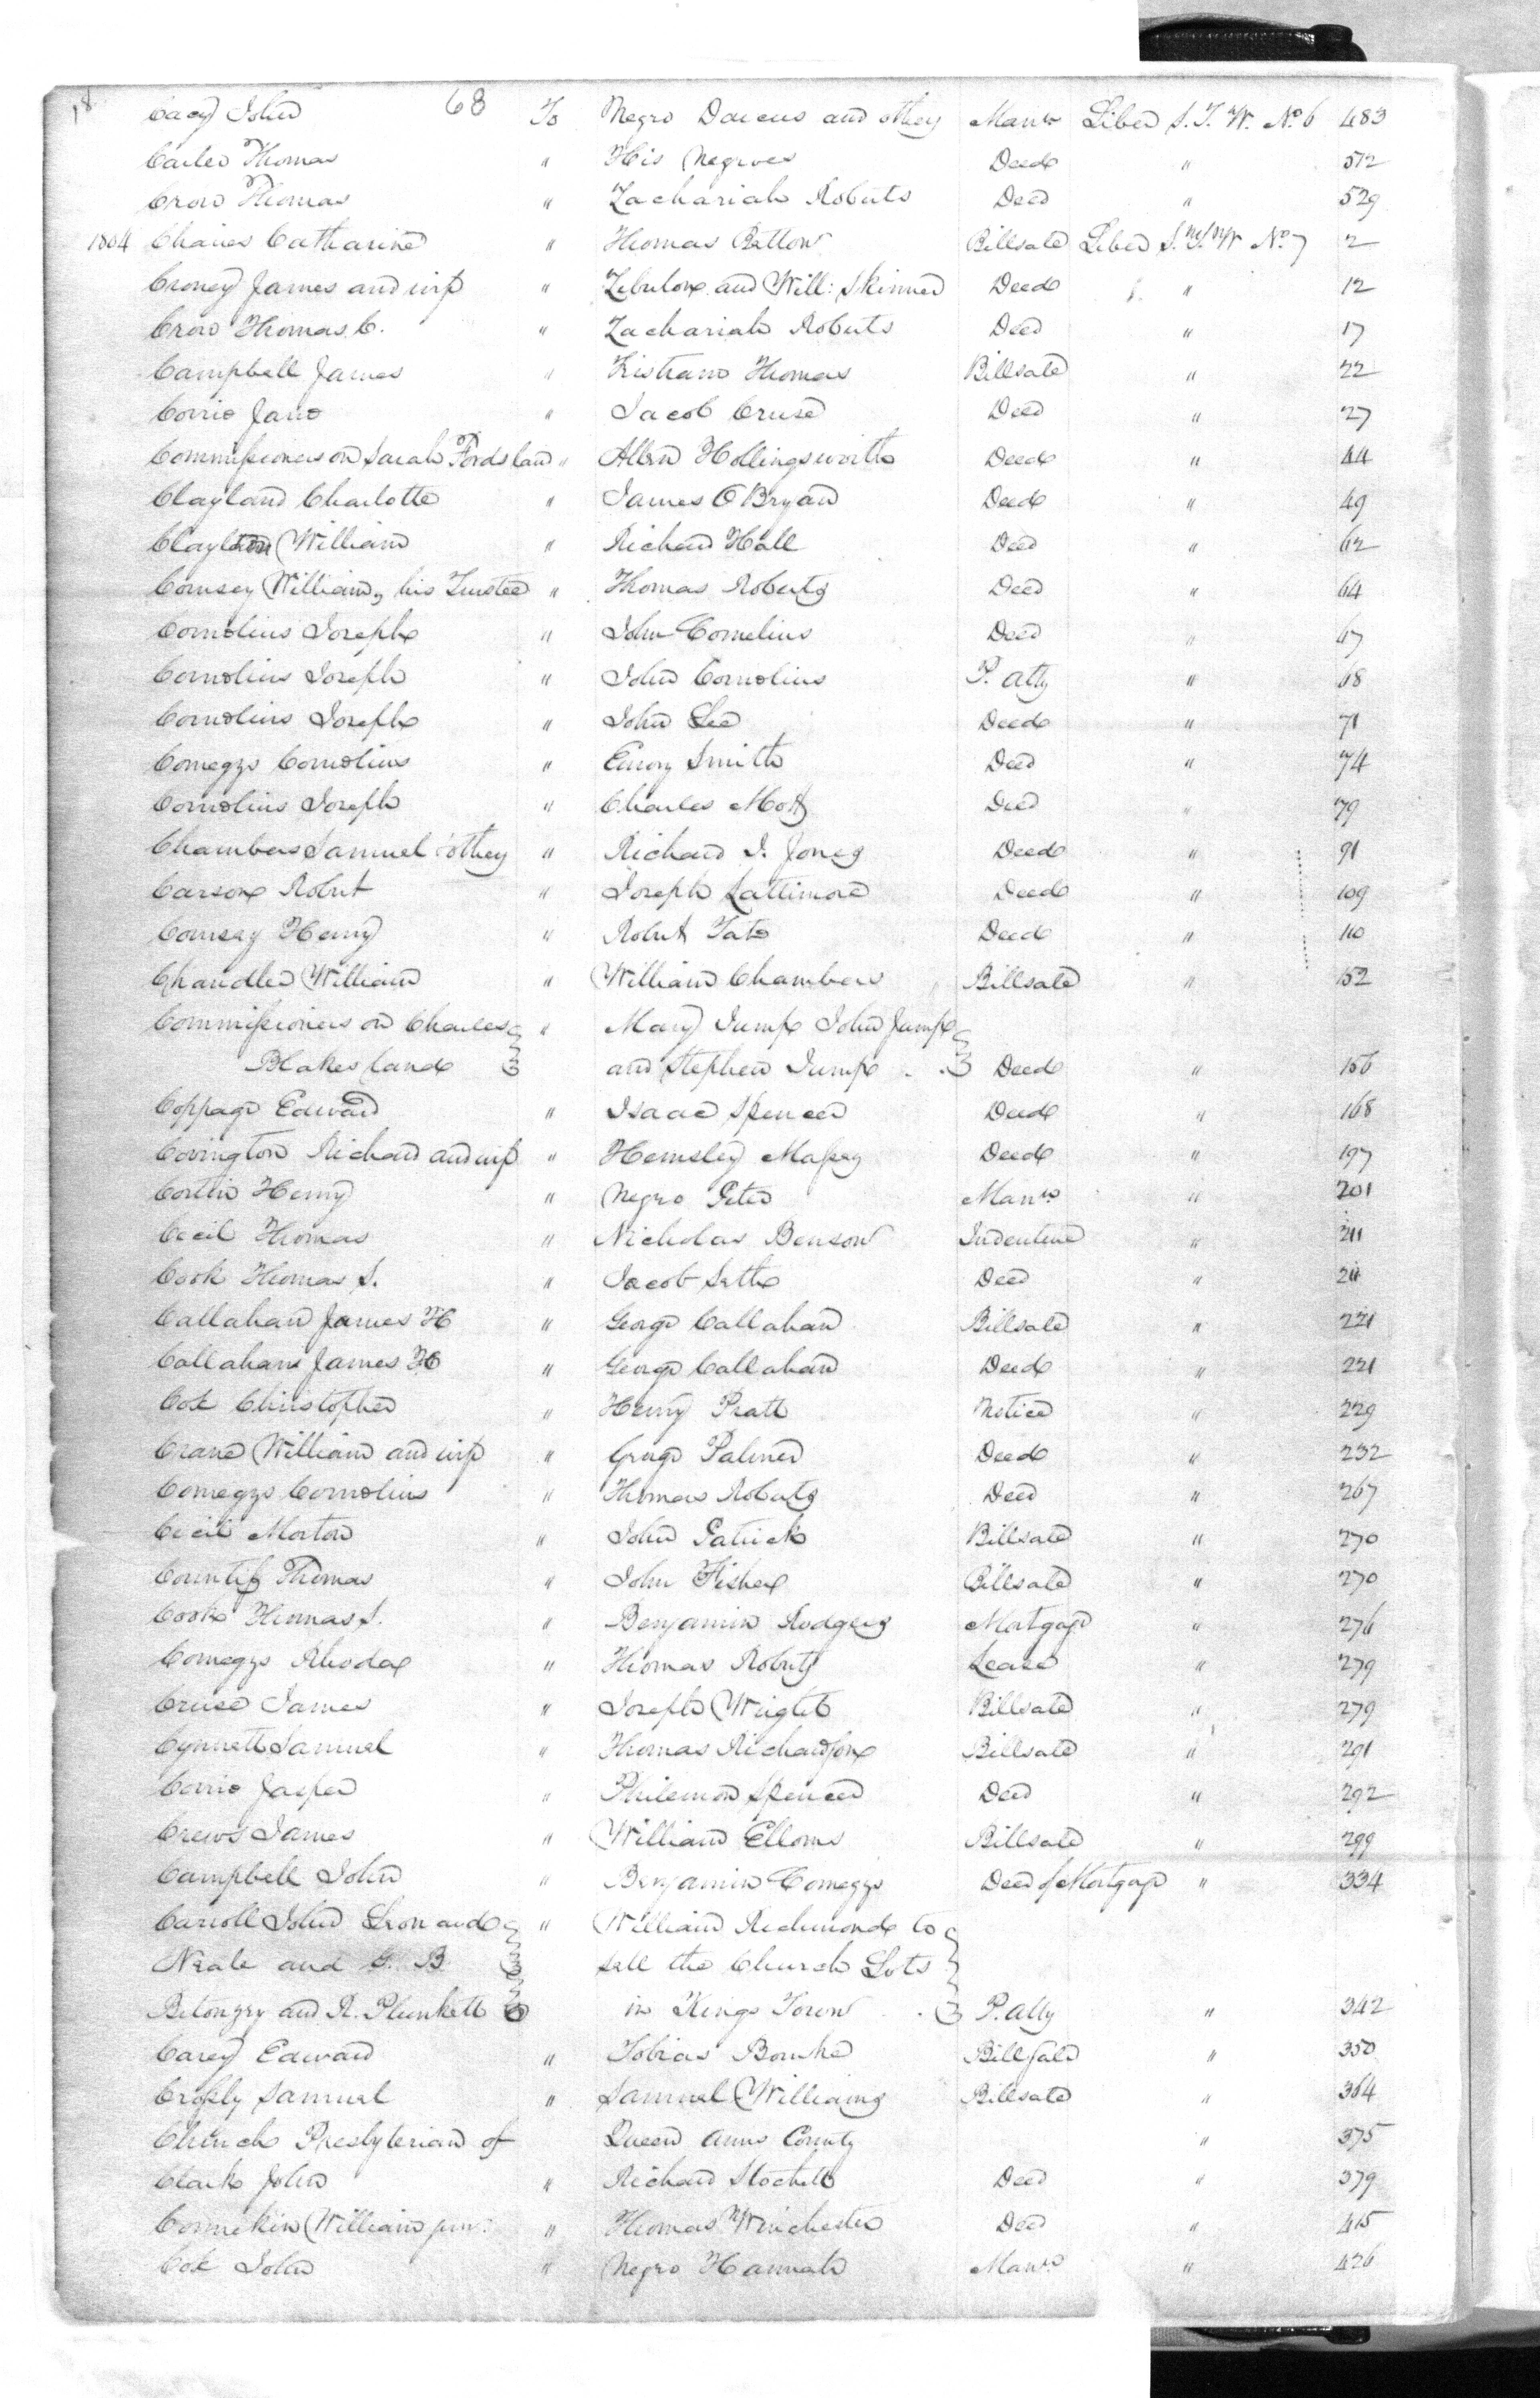 18 Cacy John 68 To Negro Darcus and others Mann Liber S. T. W. No. 6 483
Carter Thomas " His Negroes Deed " 512
Crow Thomas " Zachariah Roberts Deed " 529
1804 Chaires Catharine " Thomas Betton Billsale Liber S. T. W. No 7 2
Croney James and wife " Zebulon and Will: Skinner Deed " 12
Crow Thomas C. " Zachariah Roberts Deed " 17
Campbell James " Tristram Thomas Billsale " 22
Corrie Jane " Jacob Cruse Deed " 27
Commissioners on Sarah Fords land " Allen Hollingsworth Deed " 44
Clayland Charlotte " James O Bryan Deed " 49
Clayton William " Richard Hall Deed " 62
Comsey William, his Trustee " Thomas Roberts Deed " 64
Cornelius Joseph " John Cornelius Deed " 67
Cornelius Joseph " John Cornelius P. Atty " 68
Cornelius Joseph " John Lee Deed " 71
Comegys Cornelius " Emory Smith Deed " 74
Cornelius Joseph " Charles Mott Deed " 79
Chambers Samuel & others " Richard I. Jones Deed " 91
Carson Robert " Joseph Lattimore Deed " 109
Comsey Henry " Robert Tate Deed " 110
Chandler William " William Chambers Billsale " 152
Commissioners on Charles " Mary Jump John Jump
Blakes land and Stephen Jump Deed " 156
Coppage Edward " Isaac Spencer Deed " 168
Covington Richard and wife " Hemsley Massey Deed " 197
Costin Henry " Negro Peter Mann " 201
Cecil Thomas " Nicholas Benson Indenture " 211
Cook Thomas S. " Jacob Seth Deed " 211
Callahan James H " George Callahan Billsale " 221
Callahan James H " George Callahan Deed " 221
Cox Christopher " Henry Pratt Notice " 229
Crane William and wife " George Palmer Deed " 232
Comegys Cornelius " Thomas Roberts Deed " 267
Cecil Morton " John Patrick Billsale " 270
Countiss Thomas " John Fisher Billsale " 270
Cook Thomas S. " Benjamin Rodgers Mortgage " 276
Comegys Rhoda " Thomas Roberts Lease " 279
Cruse James " Joseph Wright Billsale " 279
Cynnett Samuel " Thomas Richardson Billsale " 291
Corrie Jasper " Philemon Spencer Deed " 292
Crews James " William Elloms Billsale " 299
Campbell John " Benjamin Comegys Deed of Mortgage " 334
Carroll John Leonard " William Richmond to
Neale and G. B sell the Church Lots
Bitongry and R. Plunkett in Kings Town P. Atty " 342
Carey Edward " Tobias Bourke Billsale " 350
Crossly Samuel " Samuel Williams Billsale " 364
Church Presbyterian of Queen Anns County " 375
Clark John " Richard Stockett Deed " 379
Connikin William jun: " Thomas Winchester Deed " 415
Cox John " Negro Hannah Mann " 426